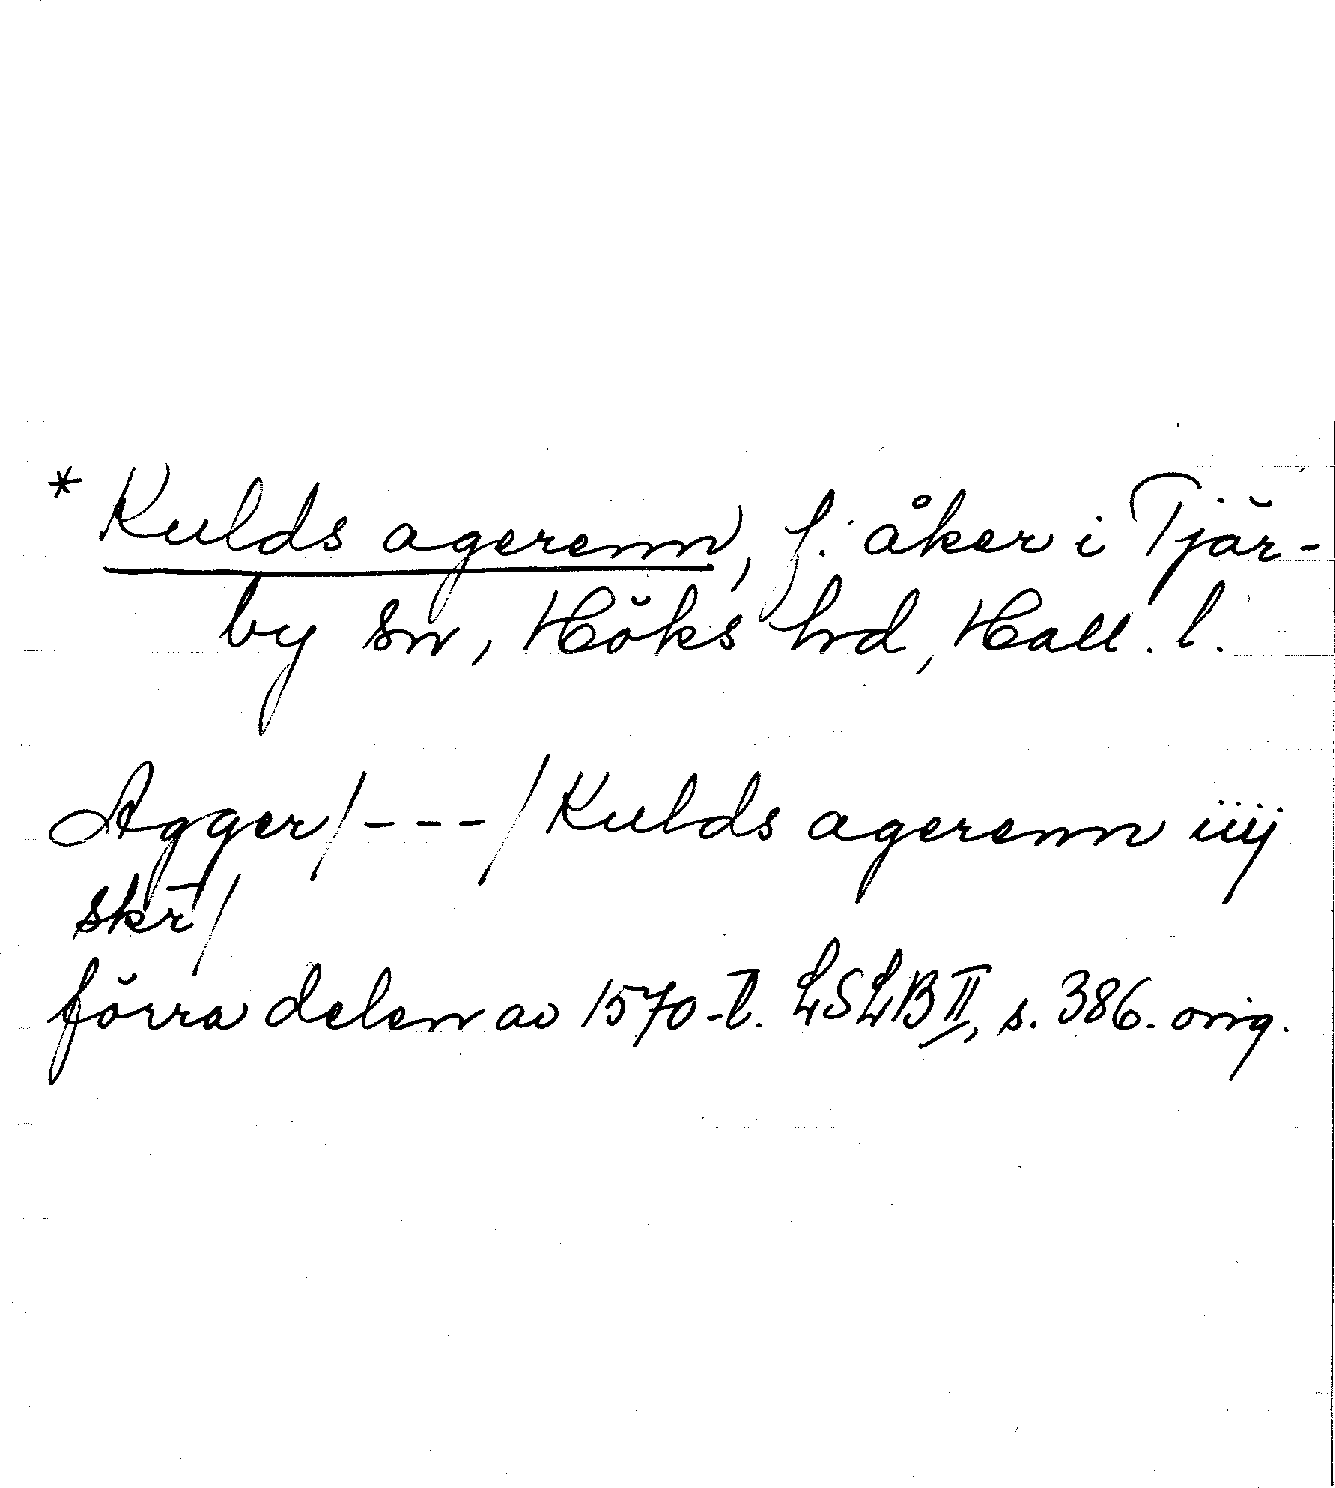 * Kulds agerenn, f. åker i Tjär-
by sn, Höks hrd, Hall. l.
Agger/---/Kulds agerenn iiij
skr̄/
förra delen av 1570-t. LSLB II, s. 386. orig.